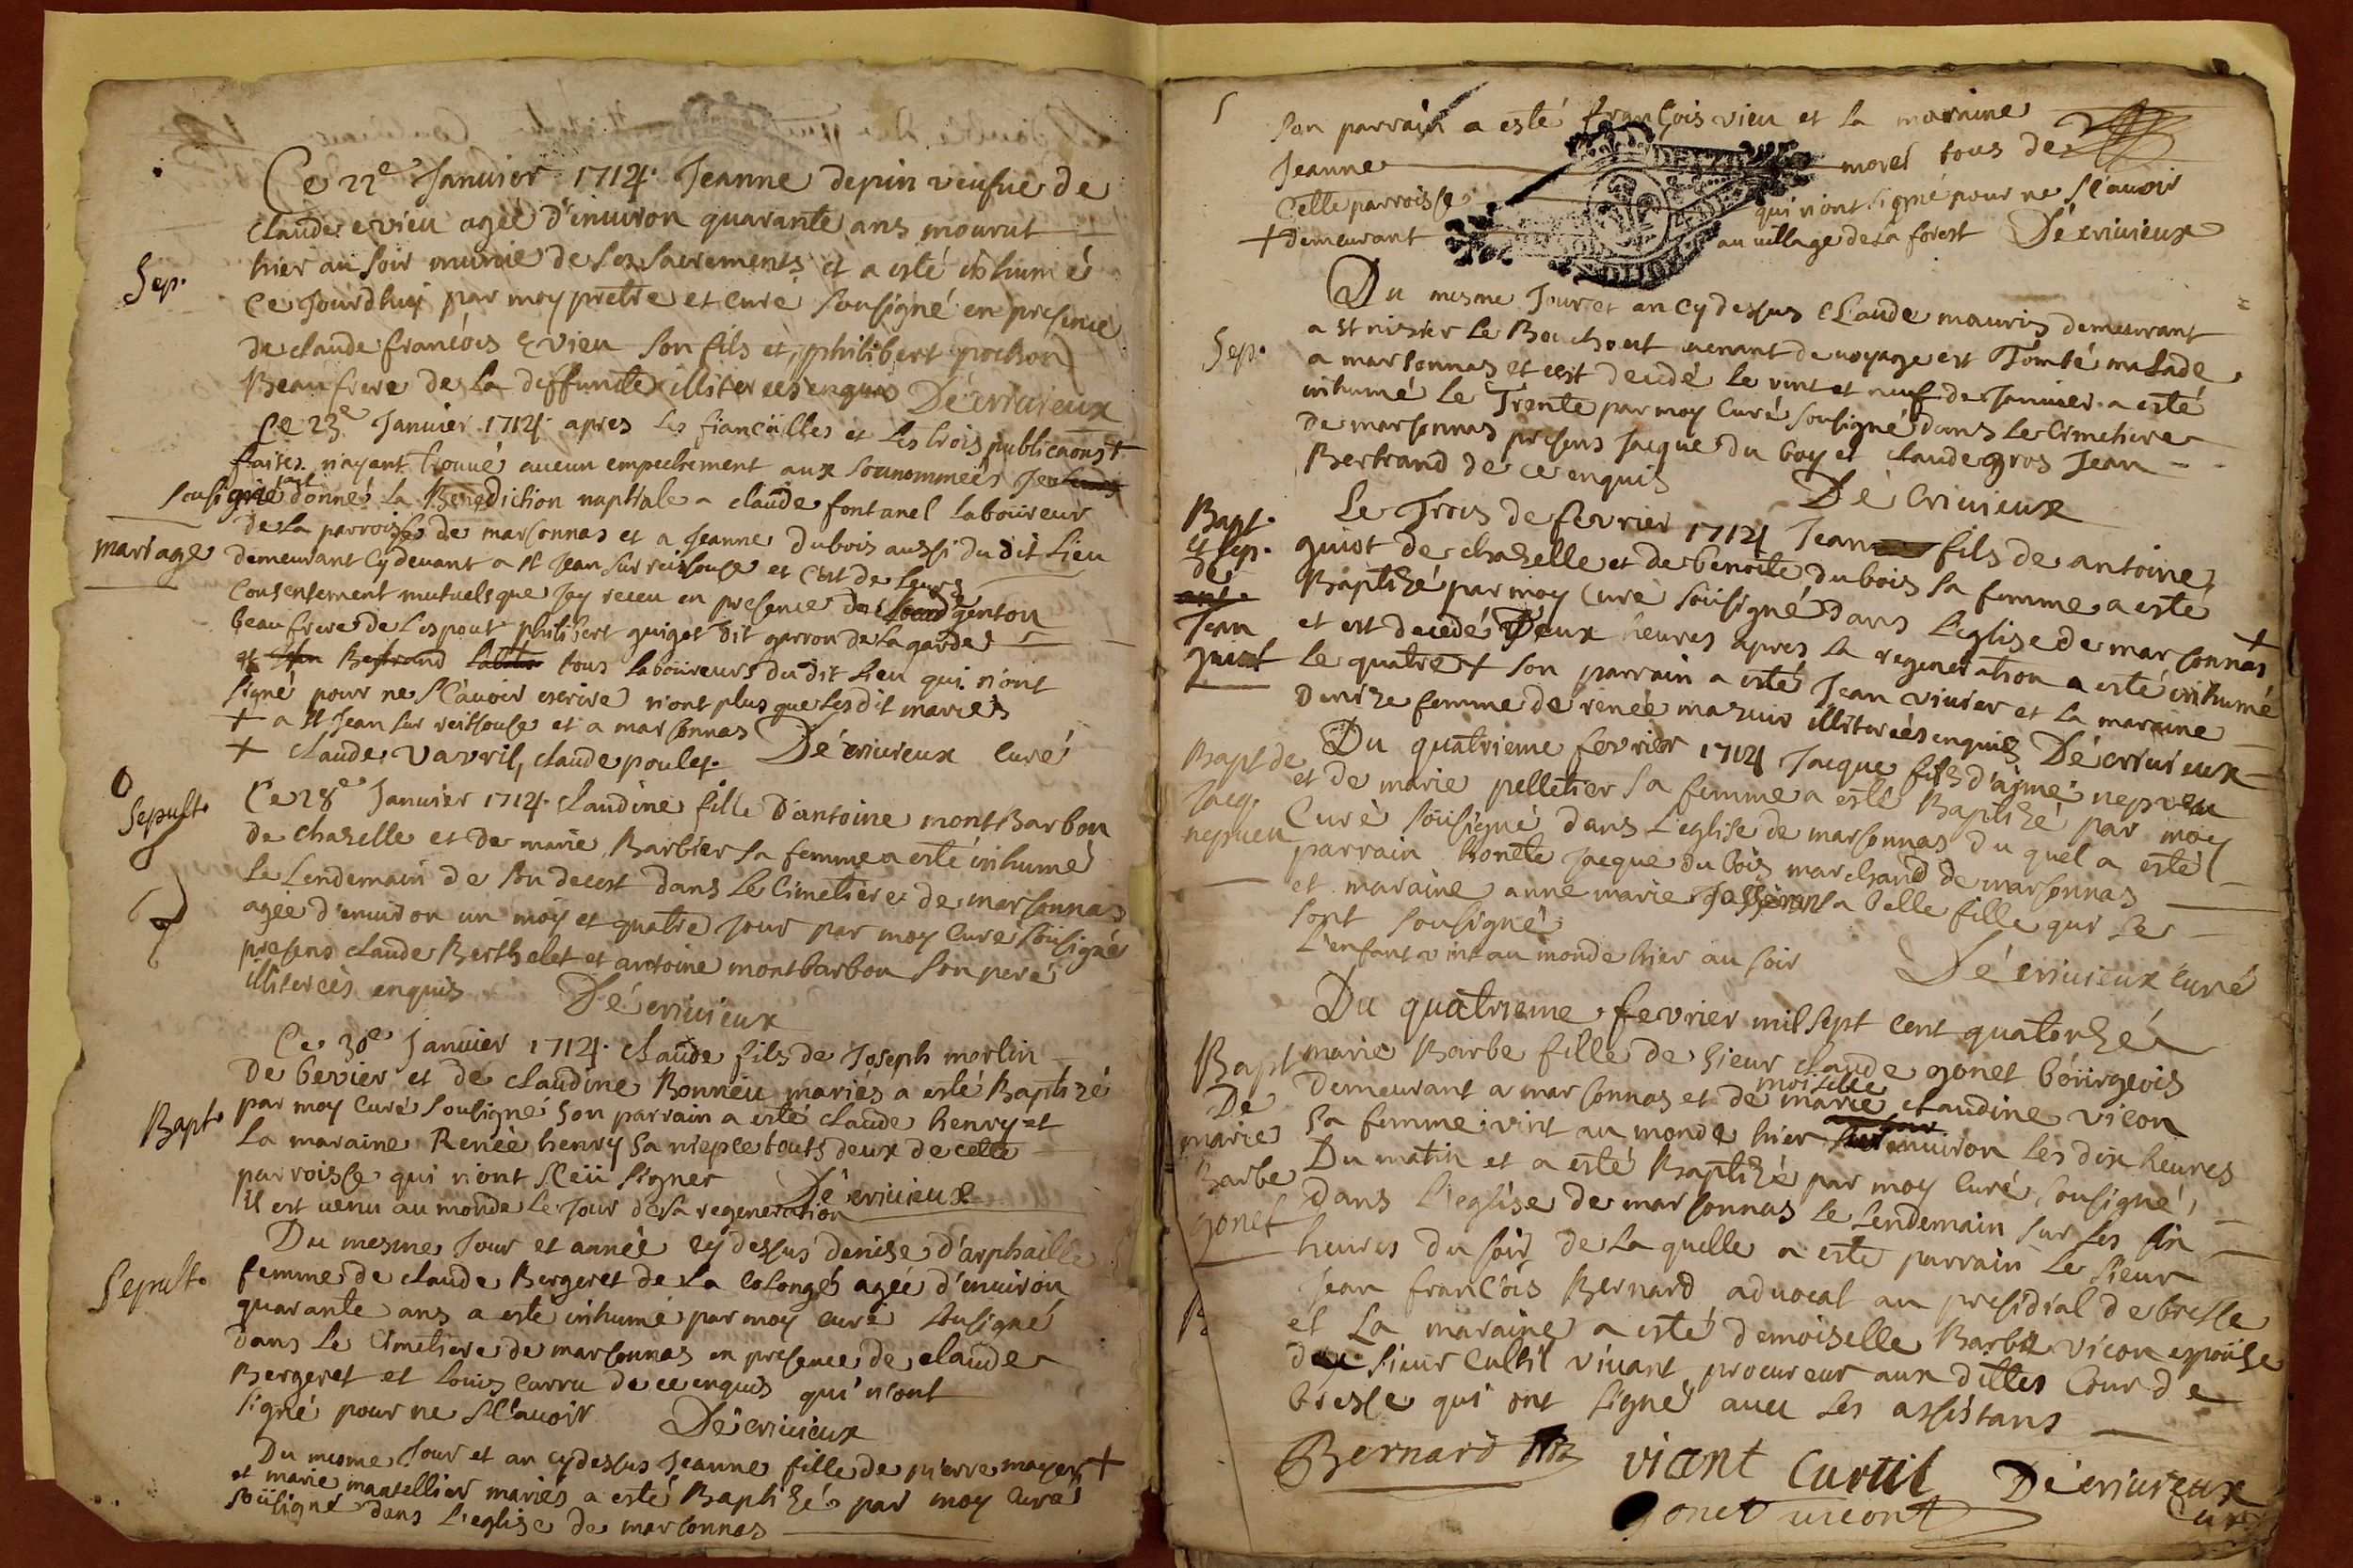 Ce 22e Janvier 1714. Jeanne depin veufue de
claude evieu agée d'enuiron quarante ans mourut
Sep.
hier au soir munie de ses sacrements et a esté inhumé
ce Jourdhuy par moy pretre et curé sousigné en presence
de claude françois Evieu son fils et philibert pochon
Beaufrere de la deffunte illiterees enquis Dé criuieux
Ce 23e Janvier 1714. apres les fiancailles et les trois publicaons +
faites n'ayant trouué aucun empechement aux sounommeés Je
sousigné ay donnés la Benediction nuptiale a claude fontanel laboureur
de la parroisse de marsonnas et a Jeanne dubois aussi du dit lieu
mariage
demeurant cy deuant a st Jean sur reissouse et c'est de leurs
consentement mutuels que J'ay receu en presence de genton
beaufrere de l'espoux philibert guigot dit garron de la garde
et Bertrand tous laboureurs du dit lieu qui n'ont
signé pour ne sçauoir escrire n'ont plus que lesdit mariés
+ a st Jean sur reissouse et a marsonnas
+ claude vavril, claude poulet. Dé criuieux curé
Sepult.
Ce 28e Janvier 1714. claudine fille d'antoine montbarbon
de chaselle et de marie Barbier sa femme a esté inhumé
le lendemain de son deces dans le cimetiere de marsonnas
agée d'enuiron un moy et quatre jour par moy curé sousigné
presens claude Berthelet et antoine montbarbon son pere
illiterees enquis Dé criuieux
Ce 30e Janvier 1714. claude fils de Joseph morlin
de bevier et de claudine Bonneu mariés a esté Baptizé
Bapt.
par moy curé sousigné son parrain a esté claude henry et
la maraine Renée henry sa niepce touts deux de cette
parroisse qui n'ont sceü signer Dé criuieux
il est venu au monde le jour de sa regeneration
Du mesme Jour et année cy dessus denise d'arphaille
Sepult.
femme de claude Bergeret de la colonge agée d'enuiron
quarante ans a esté inhumé par moy curé sousigné
dans le cimetiere de marsonnas en presence de claude
Bergeret et louis carru de ce enquis qui n'ont
signé pour ne sçauoir Dé criuieux
Du mesme Jour et an cy dessus Jeanne fille de pierre mayer +
et marie mantellier mariés a esté Baptizé par moy curé
sousigné dans l'eglise de marsonnas
son parrain a esté françois vieu et la maraine
Jeanne morel tous de
cette parroisse qui n'ont signé pour ne sçauoir
+ demeurant au village de la forest Dé criuieux
Du mesme Jour et an cy dessus claude mauris demeurant
Sep.
a st nisier le Bouchout venant de voyage est Tombé malade
a marsonnas et est decedé le vint et neuf de Janvier a esté
inhumé le Trente par moy curé sousigné dans le cimetiere
de marsonnas presens Jacque du boy et claude gros Jean
Bertrand de ce enquis Dé criuieux
Bapt.
et sep.
de
Jean
guiot
Le Trois de fevrier 1714 Jean fils de antoine
guiot de chaselle et de benoite dubois sa femme a esté
Baptizé par moy curé sousigné dans l'eglise de marsonnas +
et est decedé Deux heures apres la regeneration a esté inhumé
le quatre + son parrain a esté Jean viuier et la maraine
Denise femme de renée mazuir illiterées enquis Dé criuieux
Bapt de
Jacq.
nepueu
Du quatrieme fevrier 1714 Jacque fils d'aimé nepveu
et de marie pelletier sa femme a esté Baptizé par moy
Curé sousigné dans l'eglise de marsonnas du quel a esté
parrain honete Jacque du bois marchand de marsonnas
et maraine anne marie sa belle fille qui se
sont sousigné
l'enfant vint au monde hier au soir Dé criuieux curé
Bapt
De
marie
Barbe
gonet
Du quatrieme fevrier mil sept cent quatorzé
marie Barbe fille de sieur claude gonet bourgeois
demeurant a marsonnas et de moiselle marie claudine vicon
sa femme vint au monde hier enuiron les dix heures
Du matin et a esté Baptizé par moy curé sousigné
dans l'eglise de marsonnas le lendemain sur les six
heures du soir de la quelle a esté parrain le sieur
Jean François Bernard aduocat au presidial de bresse
B
et la maraine a esté demoiselle Barbe vicon epouse
du sieur Cultil viuant procureur aux dittes Cour de
bresse qui ont signé auec les assistans
Bernard vicont Curtil Dé criuieux
gonet vicont Curé